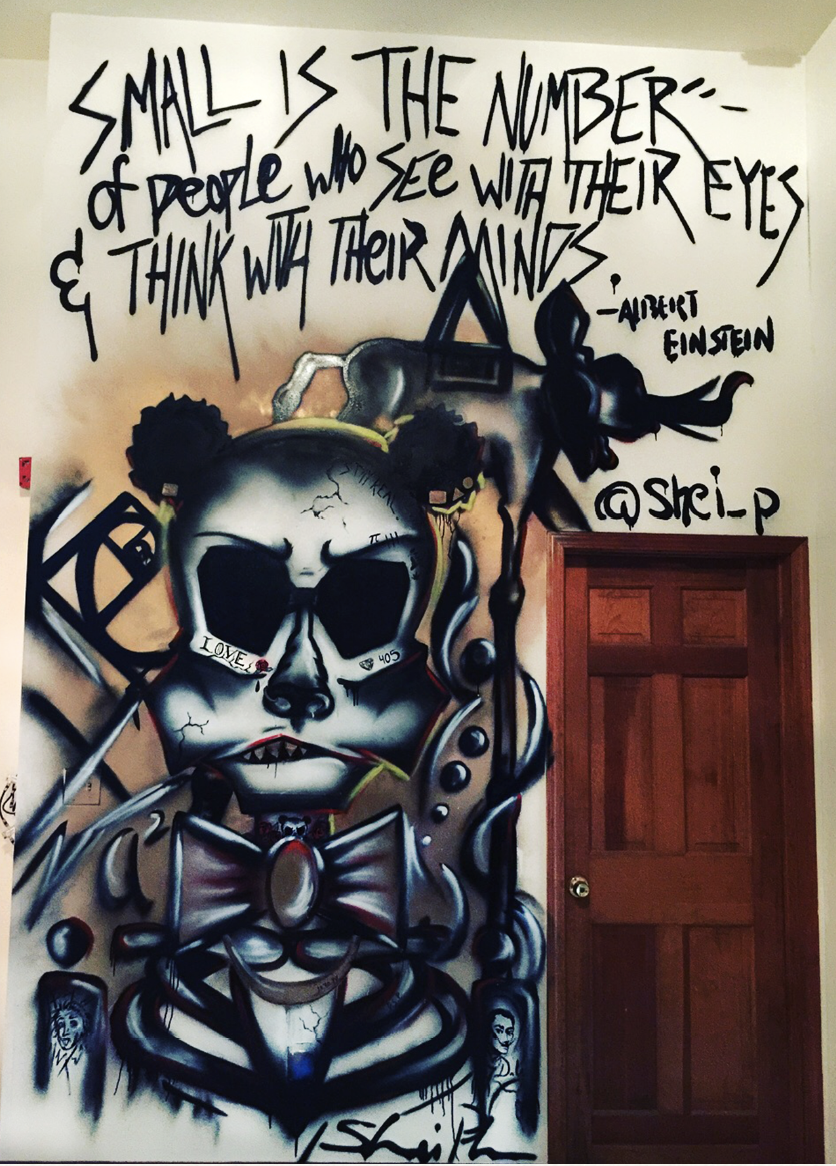 SMALL IS THE NUMBER
of people who see with THEIR EYES
& THINK WITH THEIR MINDS.
-ALBERT
EINSTEIN
@shei_p
LOVE
405
a²